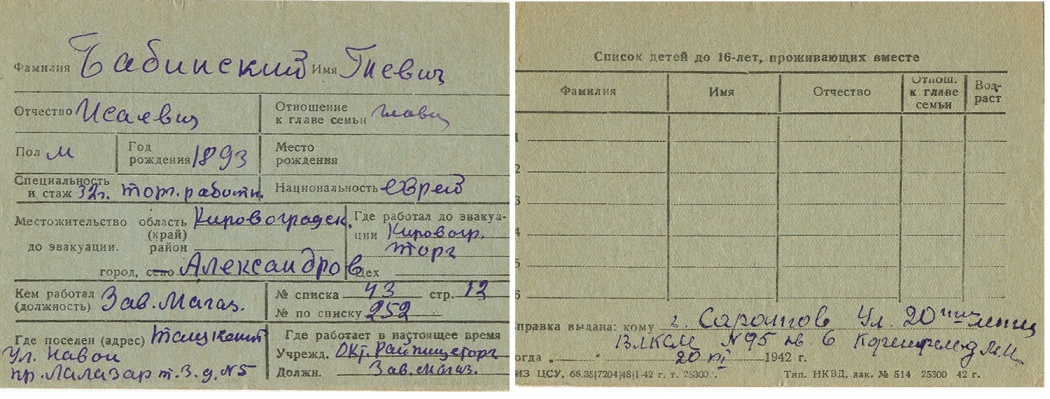 Фамилия Бабинский Имя Гневич
Отчество Исаевич Отношение к главе семьи глава
Пол м Год рождения 1893 Место рождения
Специальность и стаж 32 г. торг. работн. Национальность еврей
Местожительство до эвакуации. область (край) Кировоградск.
район
город, село Александров
Где работал до эвакуации Кировогр. торг
Цех
Кем работал (должность) Зав. магаз.
№ списка 43 стр. 12
№ по списку 252
Где поселен (адрес) Ташкент
Ул. Навои
пр. Лалазар т. 3. д. №5
Где работает в настоящее время
Учрежд. Окт. Райпищеторг
Должн. Зав. магаз.
Список детей до 16-лет, проживающих вместе
Фамилия Имя Отчество Отнош. к главе семьи Возраст
1
2
3
4
5
6
правка выдана: кому г. Саратов Ул. 20 ти летия
ВЛКСМ №95 кв. 6
огда „ " 20 VI 1942 г.
ИЗ ЦСУ, 68.38|7204|48|1-42 г. т. 25300. Тип. НКВД, зак. № 514 25300 42 г.